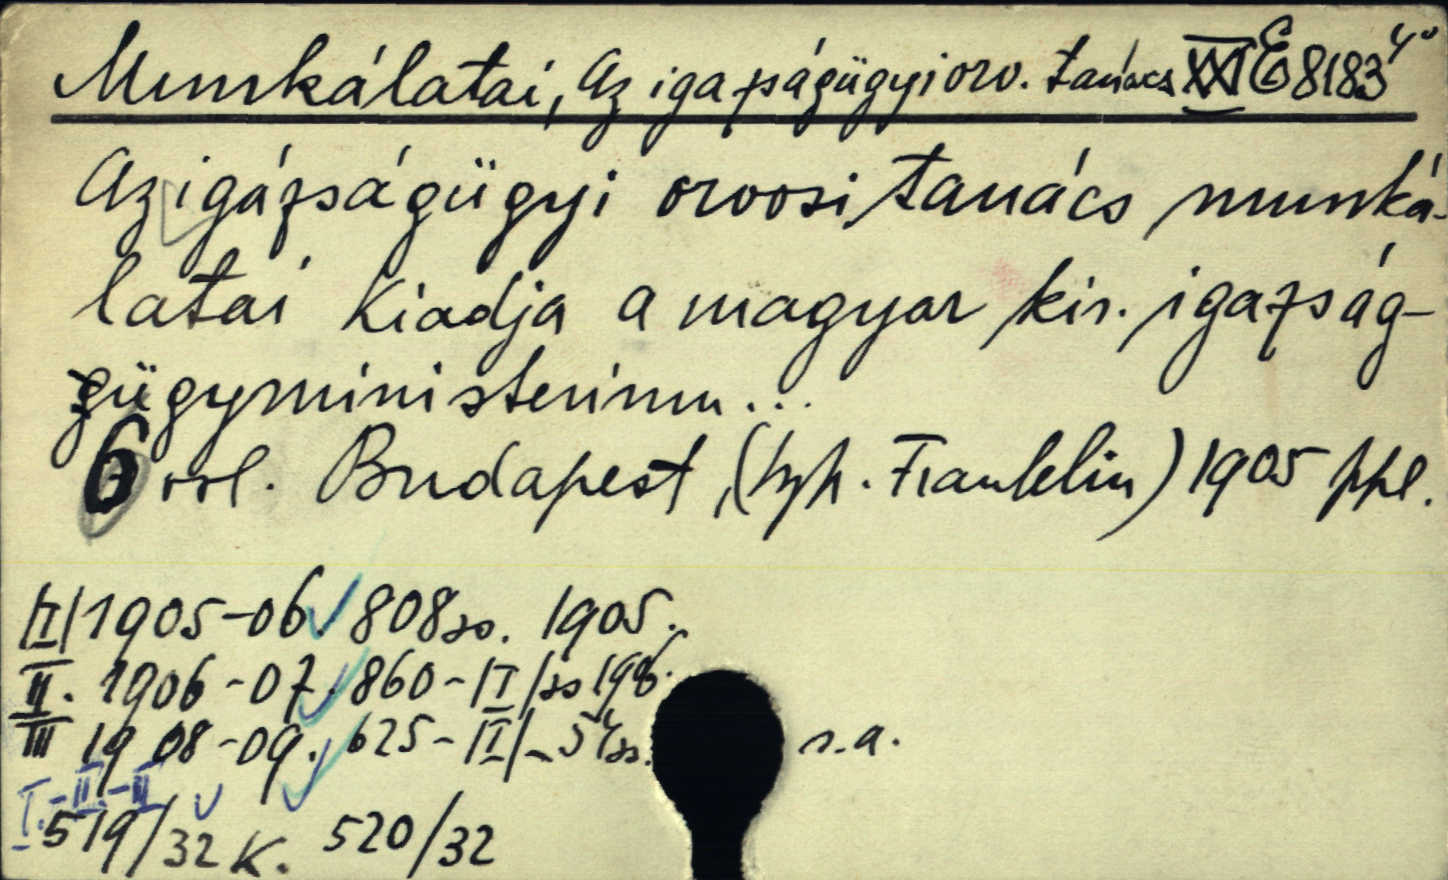 Munkálatai, Az igazságügyi orv. tanács XXI E 8183 4°
Az igázságügyi orvosi tanács munká-
latai Kiadja a magyar kir. igazság-
gügyministerium...
6 vol. Budapest, (typ. Franklin) 1905 ppl.
|I| 1905-06. 808 ss. 1905.
II. 1906-07. 860-|I| ss 1906.
III 1908-09. 625-|I|-54 ss. s.a.
I.-II-III
519/32 K. 520/32